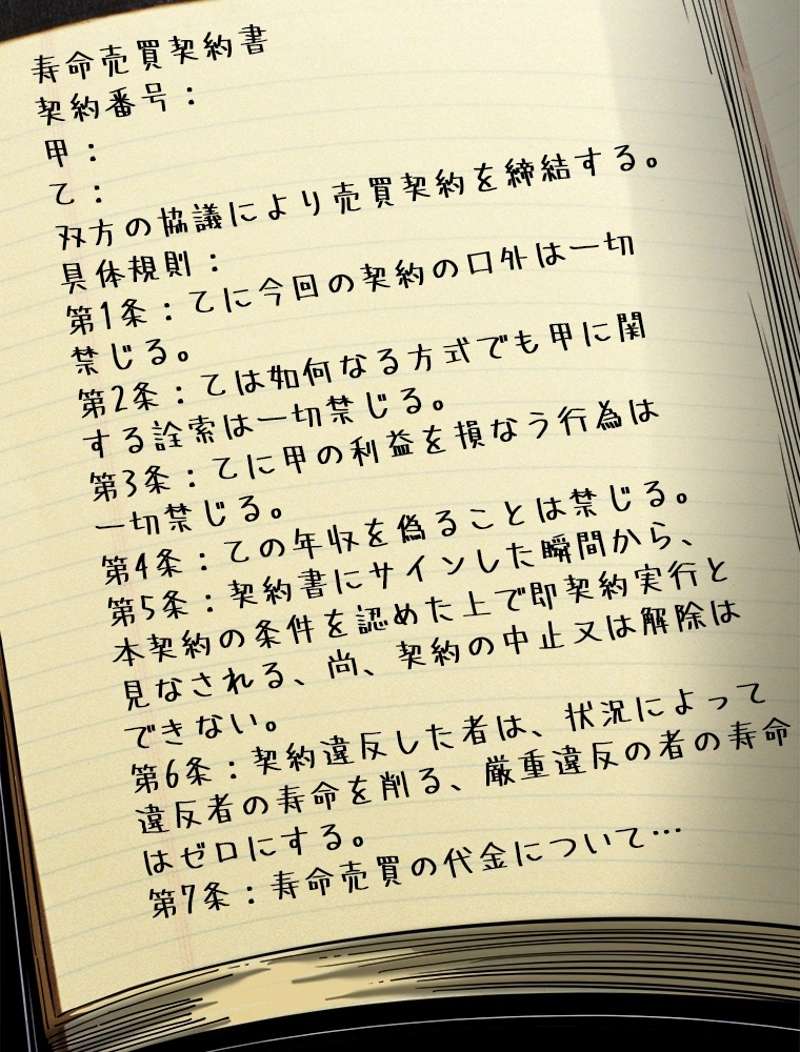 寿命売買契約書
契約番号：
甲：
乙：
双方の協議により売買契約を締結する。
具体規則：
第1条：乙に今回の契約の口外は一切
禁じる。
第2条：乙は如何なる方式でも甲に関
する詮索は一切禁じる。
第3条：乙に甲の利益を損なう行為は
一切禁じる。
第4条：乙の年収を偽ることは禁じる。
第5条：契約書にサインした瞬間から、
本契約の条件を認めた上で即契約実行と
見なされる、尚、契約の中止又は解除は
できない。
第6条：契約違反した者は、状況によって
違反者の寿命を削る、厳重違反の者の寿命
はゼロにする。
第7条：寿命売買の代金について…